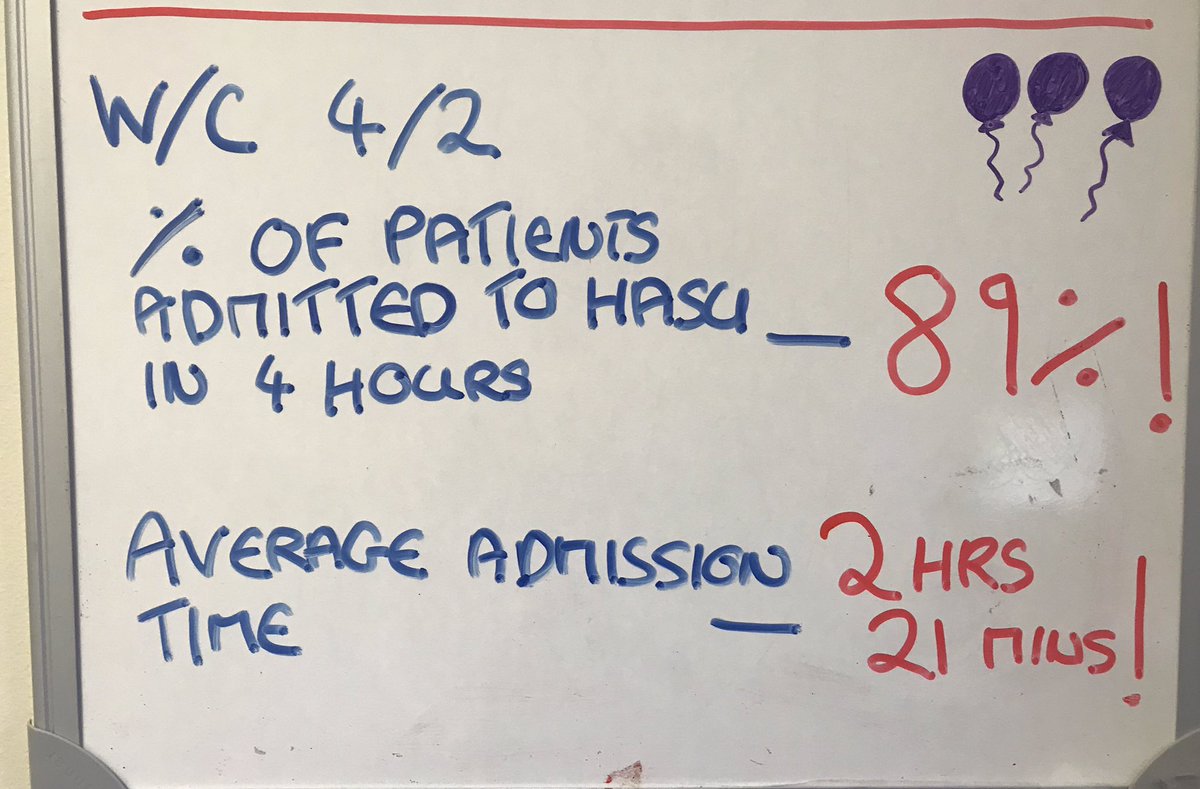 W/C 4/2
% OF PATIENTS
ADMITTED TO HASU — 89%!
IN 4 HOURS
AVERAGE ADMISSION 2 HRS
TIME — 21 MINS!